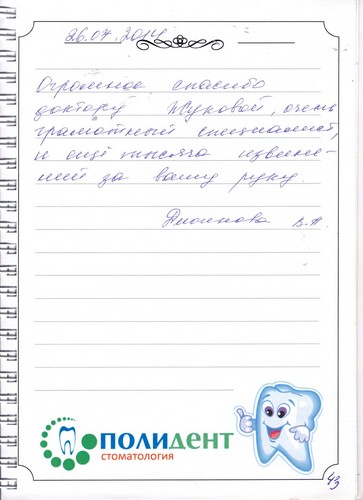 26.07.2014
Огромное спасибо
доктору Жуковой, очень
грамотный специалист,
и ещё тысяча извине-
ний за вашу руку.
В.А.
ПОЛИДЕНТ
СТОМАТОЛОГИЯ
43